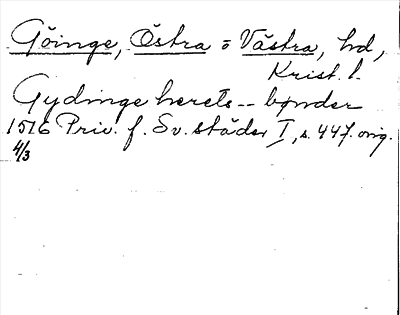 Göinge, Östra o Västra, hd,
Krist. l.
Gydinge herets -- bønder
1516 Priv. f. Sv. städer I, s. 447. orig.
4/3